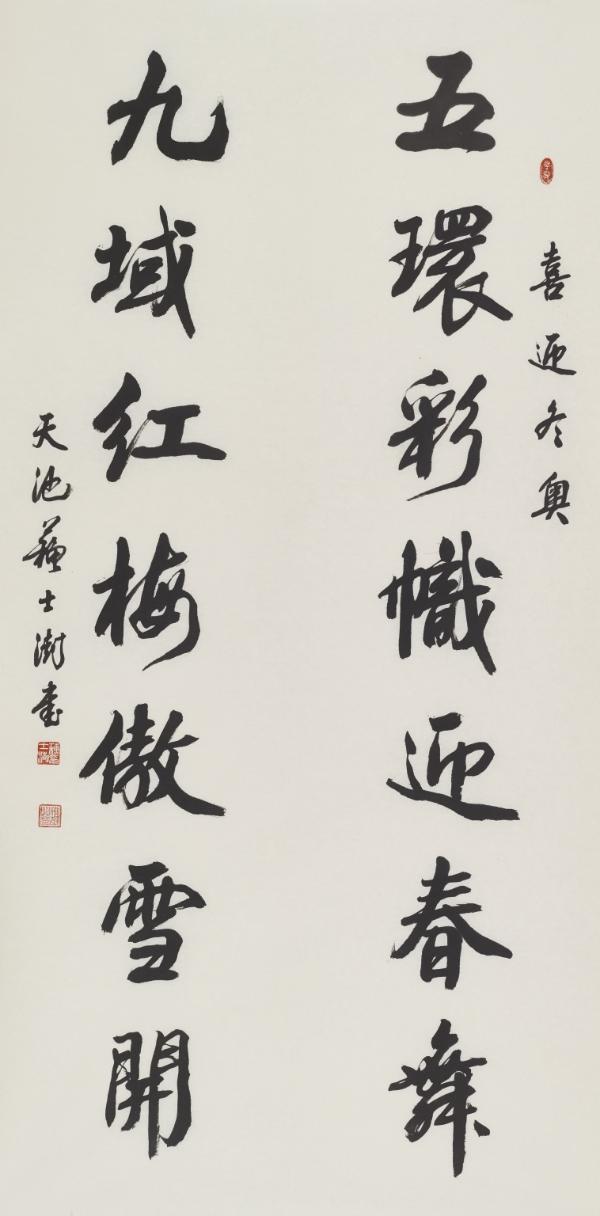 喜迎冬奥
五環彩幟迎春舞
九域红梅傲雪開
天池蘇士澍書